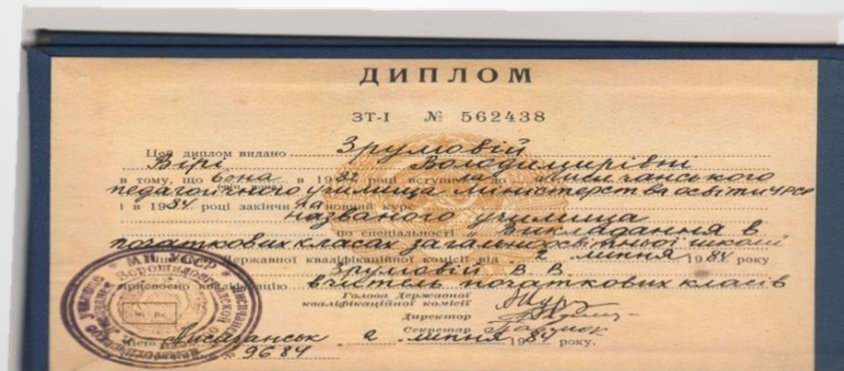 ДИПЛОМ
ЗТ-I № 562438
Цей диплом видано Зрумовій
Вірі Володимирівні
в тому, що вона в 1982 році вступила до Лисичанського
педагогічного училища Міністерства освіти УРСР
і в 1984 році закінчила повний курс
названого училища
по спеціальності „Викладання в
початкових класах загальноосвітньої школи
Державної кваліфікаційної комісії від 2 липня 1984 року
Зрумовій В. В.
присвоєно кваліфікацію вчитель початкових класів
Голова Державної
кваліфікаційної комісії
Директор
Секретар
Місто Лисичанськ 2 липня 1984 року.
№ 9684